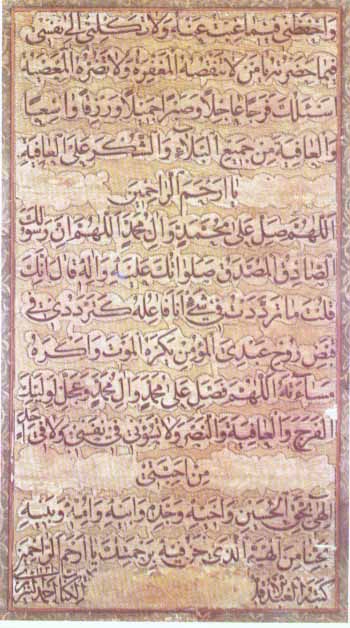 واحفظنی فیما غبت عنه ولا تکلنی الی نفسی
فیما حضرته یا من لا تنقصه المغفرة ولا تضره المعصیة
اسئلک فرجا عاجلا وصبرا جمیلا ورزقا واسعا
والعافیة من جمیع البلاء والشکر علی العافیة
یا ارحم الراحمین
اللهم صل علی محمد وال محمد اللهم ان رسولک
الصادق المصدق صلواتک علیه واله قال انک
قلت ما ترددت فی شیء انا فاعله کترددی فی
قبض روح عبدی المؤمن یکره الموت واکره
مساءته اللهم فصل علی محمد وال محمد وعجل لولیک
الفرج والعافیة والنصر ولا تسؤنی فی نفسی ولا فی احد
من احبتی
الهی بحق الحسین واخیه وجده وابیه وامه وبنیه
خلصنا من الهم الذی نحن فیه برحمتک یا ارحم الراحمین
کتبه احمد النیریزی